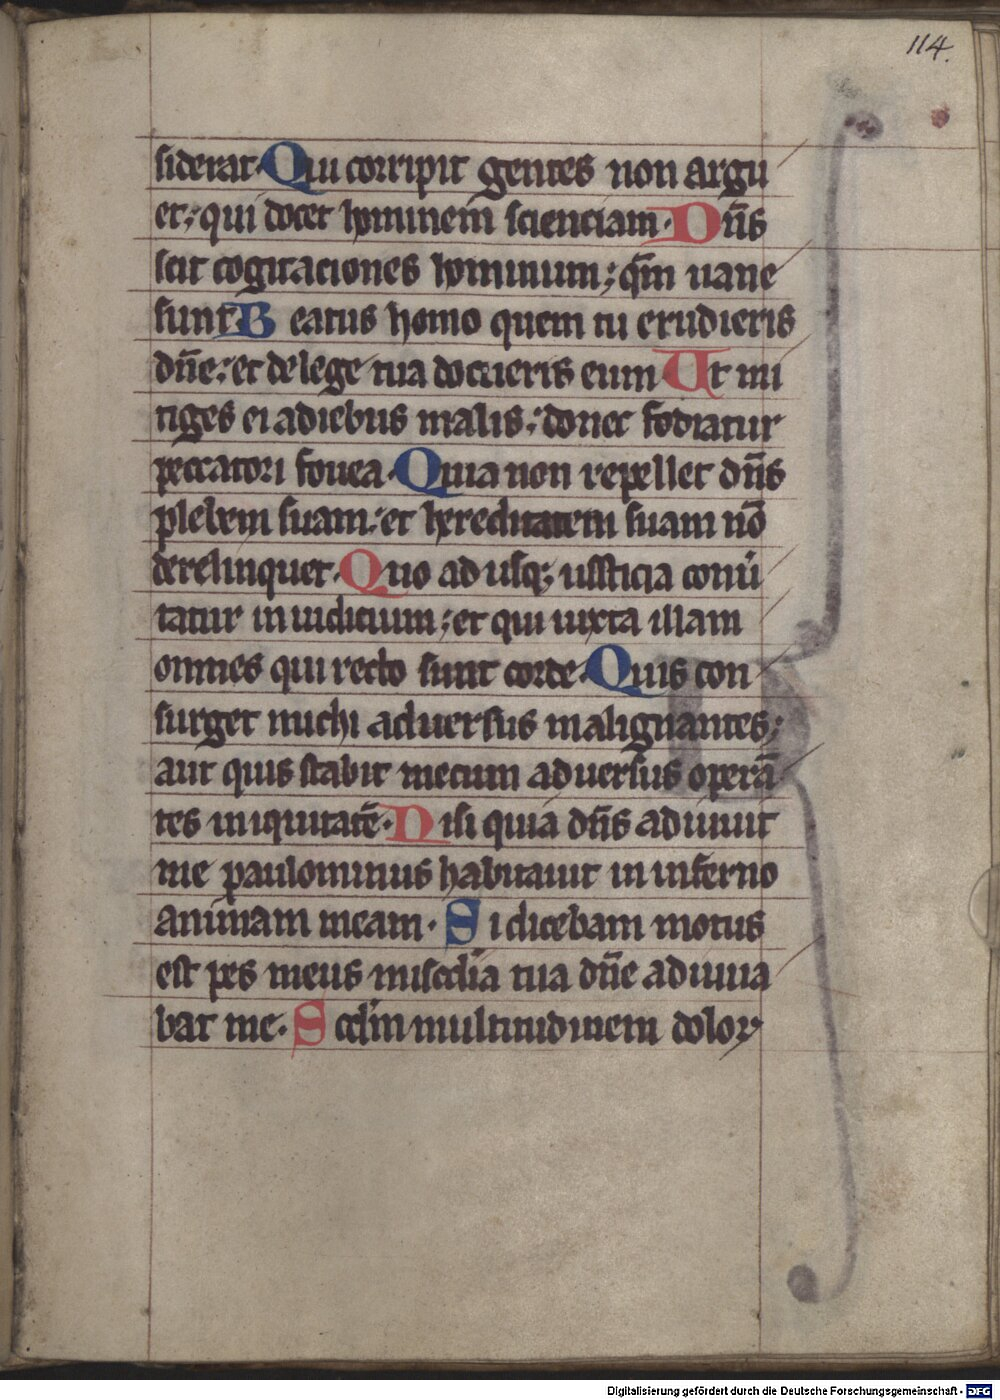 114.
siderat. Qui corripit gentes non argu
et; qui docet hominem scienciam. Dn̄s
scit cogitaciones hominum; qm̄ uane
sunt Beatus homo quem tu erudieris
dn̄e; et de lege tua docueris eum Ut mi
tiges ei adiebus malis; donec fodiatur
peccatori fouea. Quia non repellet dn̄s
plebem suam; et hereditatem suam nō
derelinquet. Quo ad usq; iusticia conū
tatur in iudicium; et qui iuxta illam
omnes qui recto sunt corde. Quis con
surget michi aduersus malignantes;
aut quis stabit mecum aduersus operā
tes iniquitatē. Nisi quia dn̄s adiuuit
me paulominus habitauit in inferno
animam meam. Si dicebam motus
est pes meus misc̄dia tua dn̄e adiuua
bat me. Scdm̄ multitudinem dolorꝝ
Digitalisierung gefördert durch die Deutsche Forschungsgemeinschaft - DFG